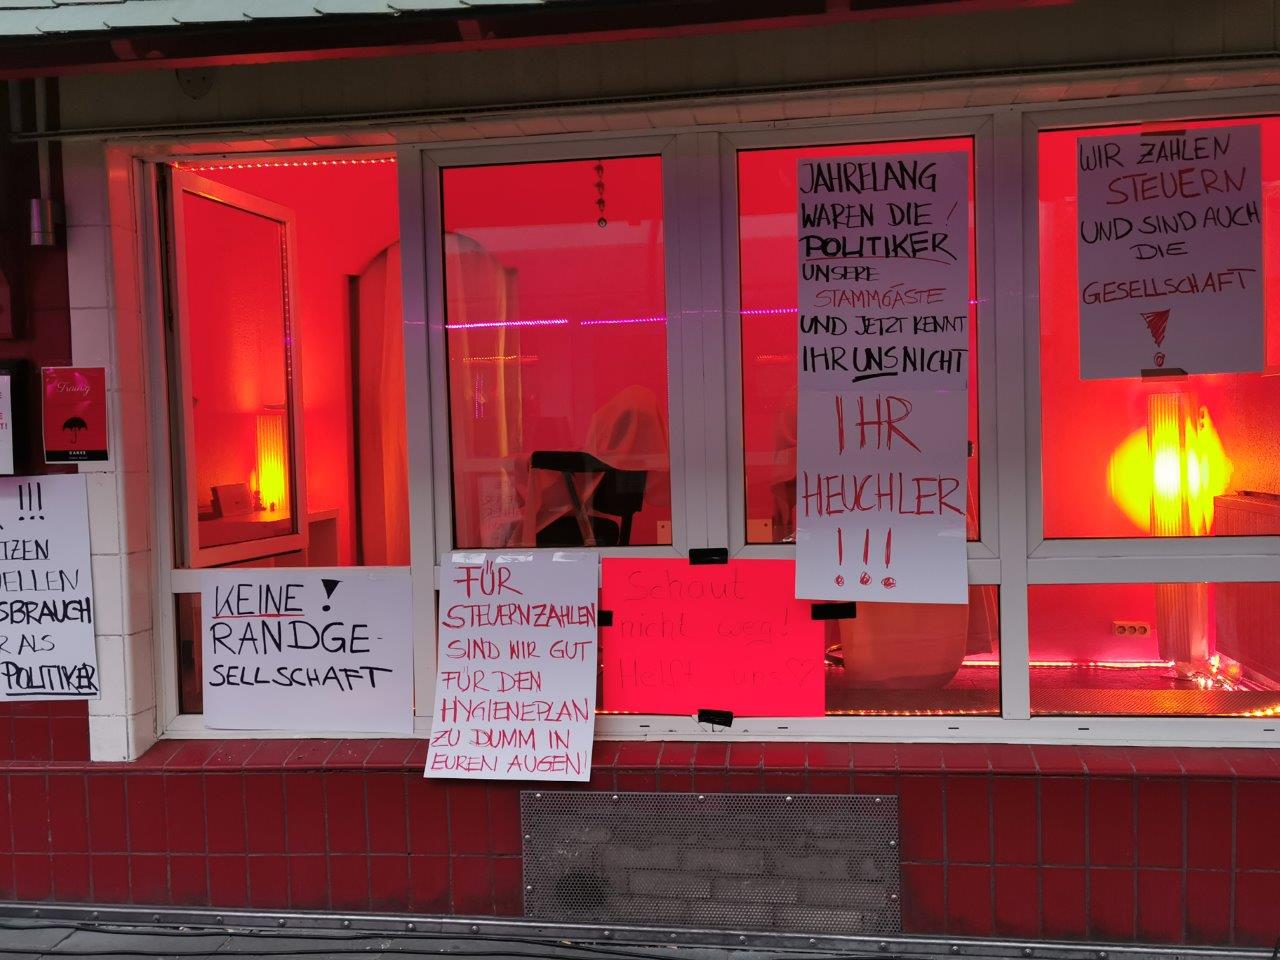 !!!
TZEN
ELLEN
SBRAUCH
R ALS
POLITIKER
Training
DANKE
KEINE !
RANDGE-
SELLSCHAFT
FÜR
STEUERNZAHLEN
SIND WIR GUT
FÜR DEN
HYGIENEPLAN
ZU DUMM IN
EUREN AUGEN!
Schaut
nicht weg!
Helft uns ♡
JAHRELANG
WAREN DIE
POLITIKER
UNSERE
STAMMGÄSTE
UND JETZT KENNT
IHR UNS NICHT
IHR
HEUCHLER
!!!
WIR ZAHLEN
STEUERN
UND SIND AUCH
DIE
GESELLSCHAFT
!